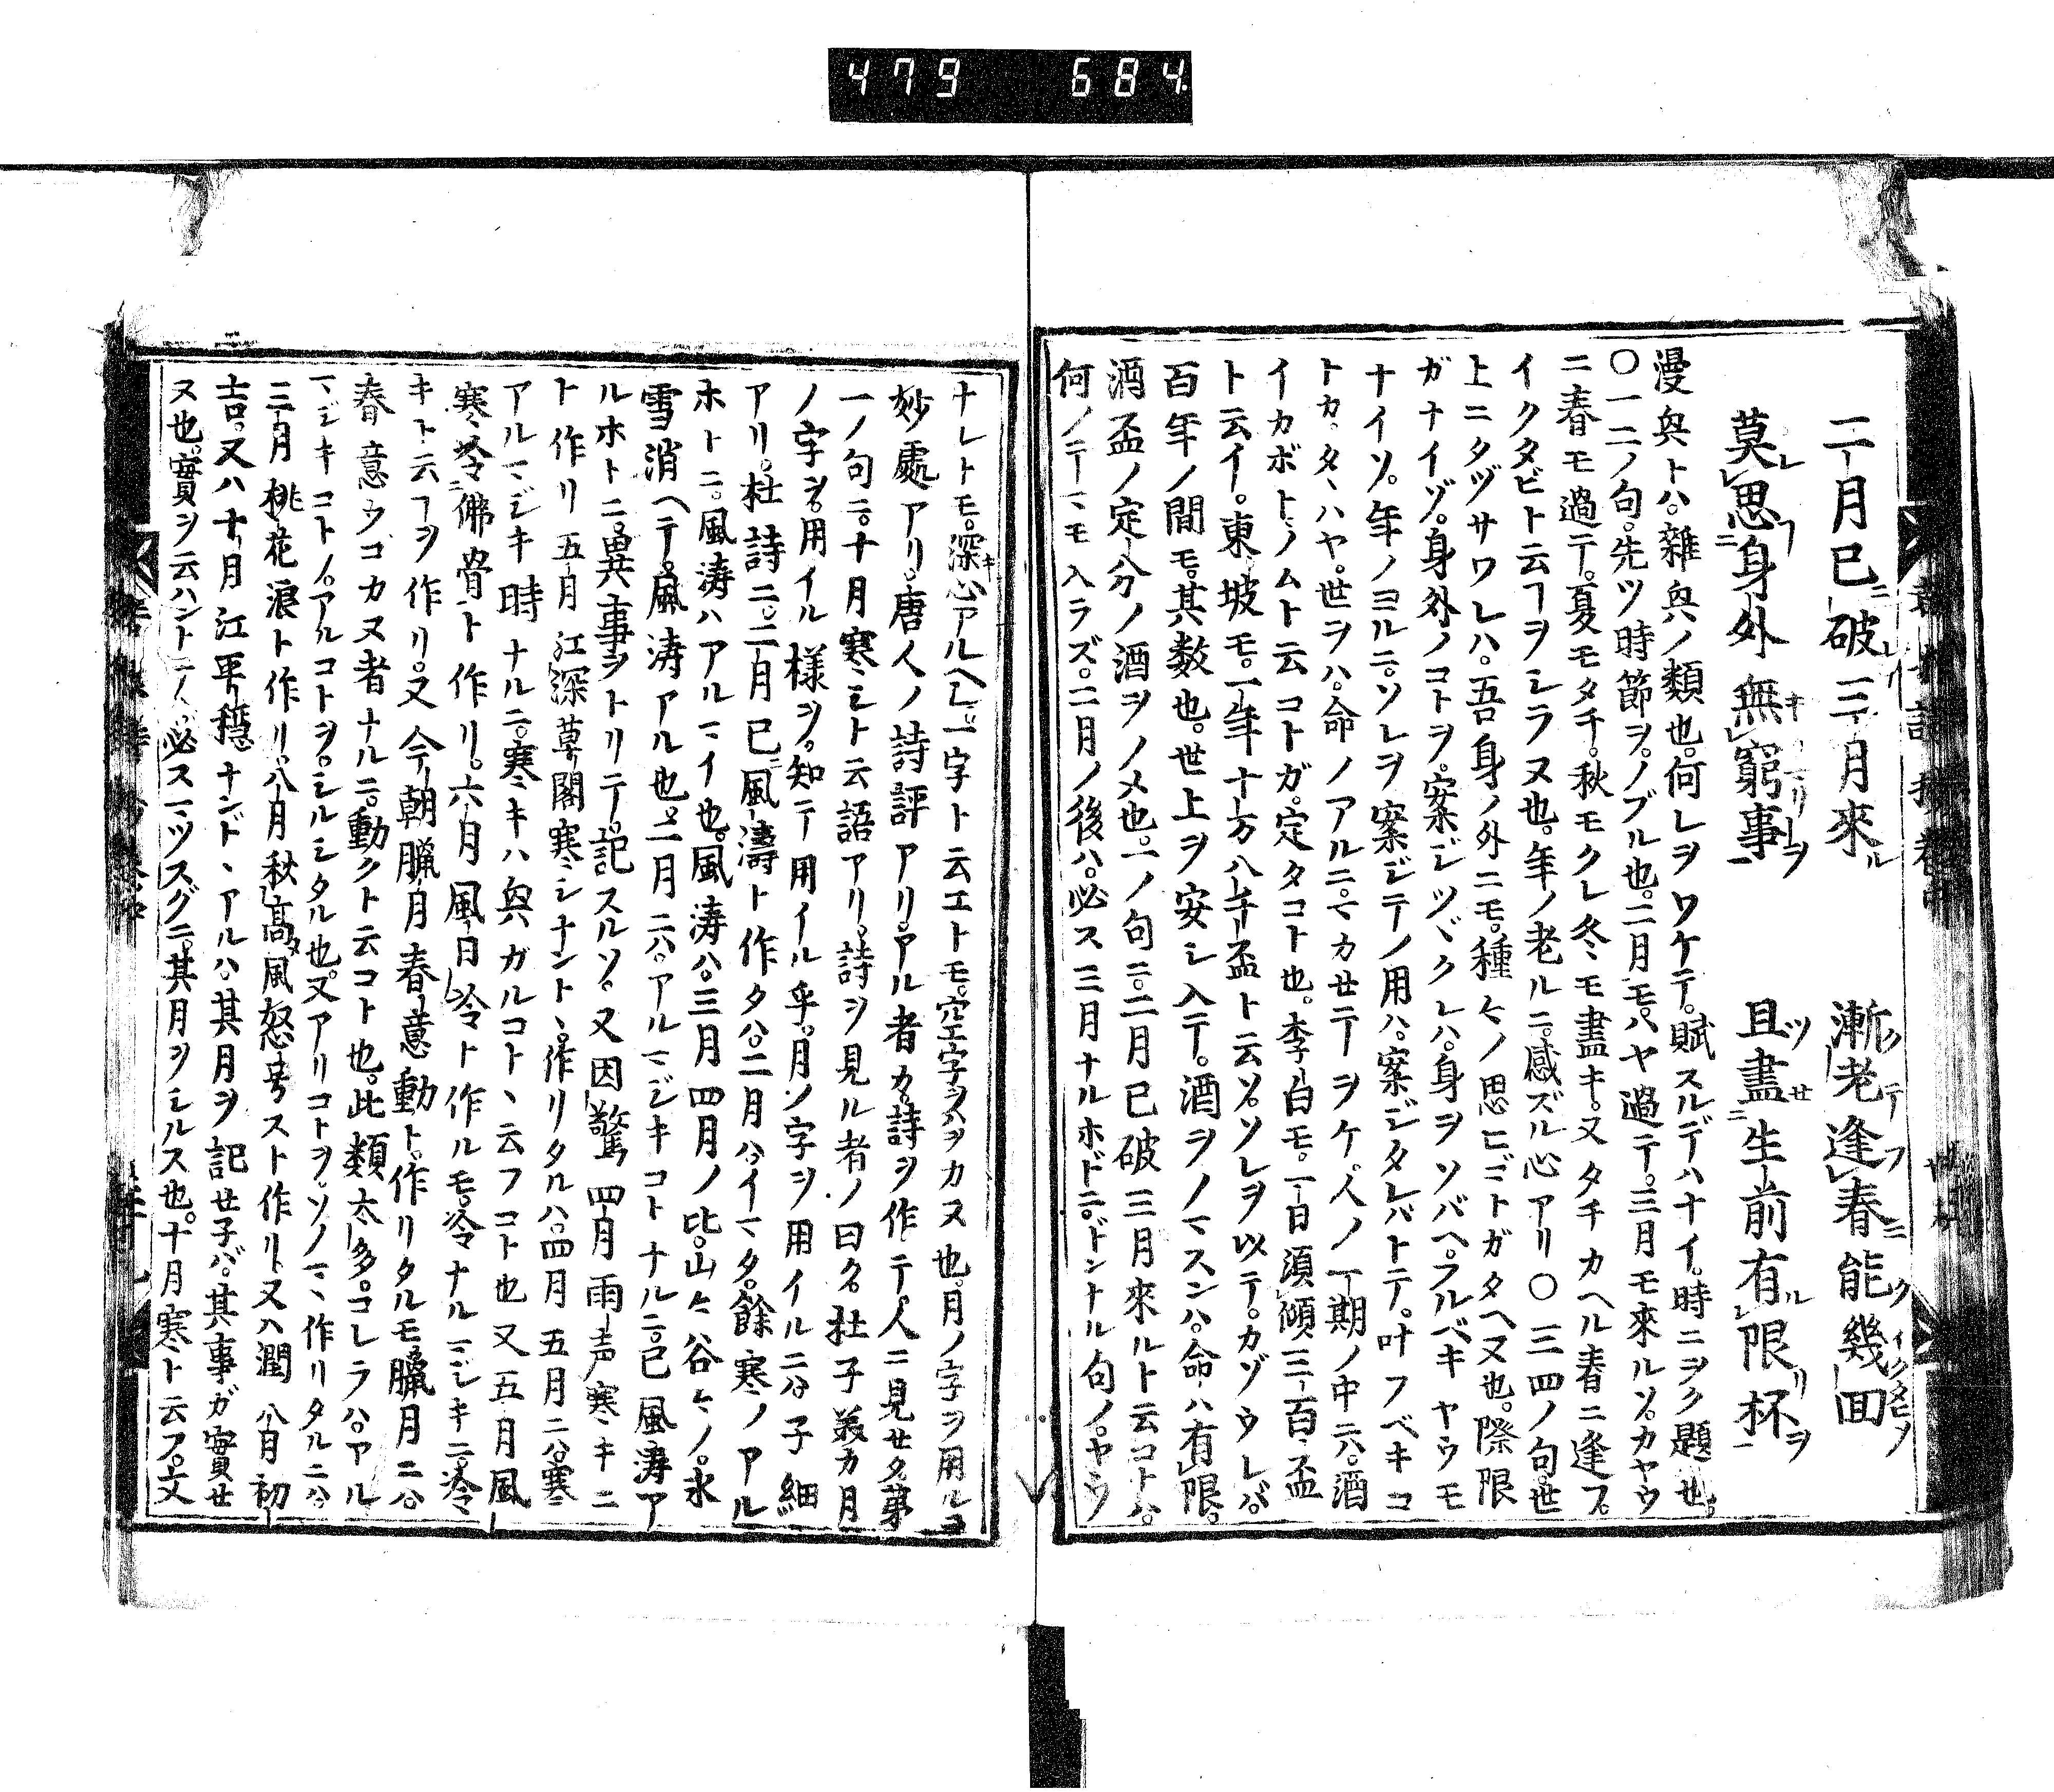 479 684.
二月已ニ破レテ三月來ル 漸ク老テ逢フ春ニ能ク幾回ソ
莫レ思フ身外無キ窮リ事ヲ 且ツ盡セ生前有ル限リ杯ヲ
漫興トハ。雜興ノ類也。何レヲワケテ。賦スルデハナイ。時ニヲク題也。
〇一二ノ句。先ツ時節ヲ。ノブル也。二月モ。ハヤ過テ。三月モ來ルソ。カヤウ
ニ春モ過テ。夏モタチ。秋モクレ冬モ盡キ。又タチカヘル春ニ逢フ。
イクタビト云ヿヲシラヌ也。年ノ老ルニ。感ズル心アリ〇三四ノ句。世
上ニタヅサワレハ。吾身ノ外ニモ。種々ノ思ヒゴトガタヘヌ也。際限
ガナイゾ。身外ノコトヲ。案ジツヾクレハ。身ヲソバヘ。フルベキヤウモ
ナイソ。年ノヨルニ。ソレヲ案ジテノ用ハ。案ジタレバトテ。叶フベキコ
トカ。タヽハヤ。世ヲハ。命ノアルニ。マカセテヲケ。人ノ一期ノ中ニハ。酒
イカボトノムト云コトガ。定タコト也。李白モ。一日須傾三百盃
ト云イ。東坡モ。一年十万八千盃ト云ソ。ソレヲ以テ。カゾウレバ。
百年ノ間モ。其数也。世上ヲ安シ入テ。酒ヲノマスンハ。命ハ有限。
酒盃ノ定分ノ酒ヲノメ也。一ノ句ニ。二月已破三月來ルト云コトハ。
何ノテーマモ入ラズ。二月ノ後ハ。必ス三月ナルホドニ。ドントル句ノ。ヤウ
ナレトモ。深キ心アルヘシ。一字ト云エトモ。空字ヲハヲカヌ也。月ノ字ヲ用ルヿ
妙處アリ。唐人ノ詩評アリ。アル者カ。詩ヲ作テ。人ニ見セタ。第
一ノ句ニ。十月寒シト云語アリ。詩ヲ見ル者ノ曰ク。杜子美カ月
ノ字ヲ。用イル樣ヲ。知テ用イル乎。月ノ字ヲ用イルニハ。子細
アリ。杜詩ニ。二月已ニ風濤ト作タハ。二月ハ。イマタ。餘寒ノアル
ホトニ。風涛ハアルマイ也。風涛ハ。三月四月ノ比。山々谷々ノ。氷
雪消ヘテ。風涛アル也。二月ニハ。アルマジキコトナルニ。已風涛ア
ルホトニ。異事ヲトリテ。記スルソ。又因驚四月雨声寒キニ
ト作リ五月江深草閣寒シナントヽ。作リタルハ。四月五月ニハ。寒
アルマジキ時ナルニ。寒キハ興ガルコトヽ云フコト也又五月風
寒冷佛骨ト作リ。六月風日冷ト作ルモ。冷ナルマジキニ。冷
キト云ヿヲ作リ。又今朝臘月春意動ト。作リタルモ。臘月ニハ。
春意ウコカヌ者ナルニ。動クト云コト也。此類太多。コレラハ。アル
マジキコトノ。アルコトヲ。シルシタル也。又アリコトヲ。ソノマヽ作リタルニハ
三月桃花浪ト作リ。八月秋高風怒号スト作リ。又ハ潤八月初
吉。又ハ十月江平穏ナンドヽアルハ。其月ヲ記セ子バ。其事ガ實セ
ヌ也。實ヲ云ハントテハ必スマツスグニ。其月ヲシルス也。十月寒ト云フ。文